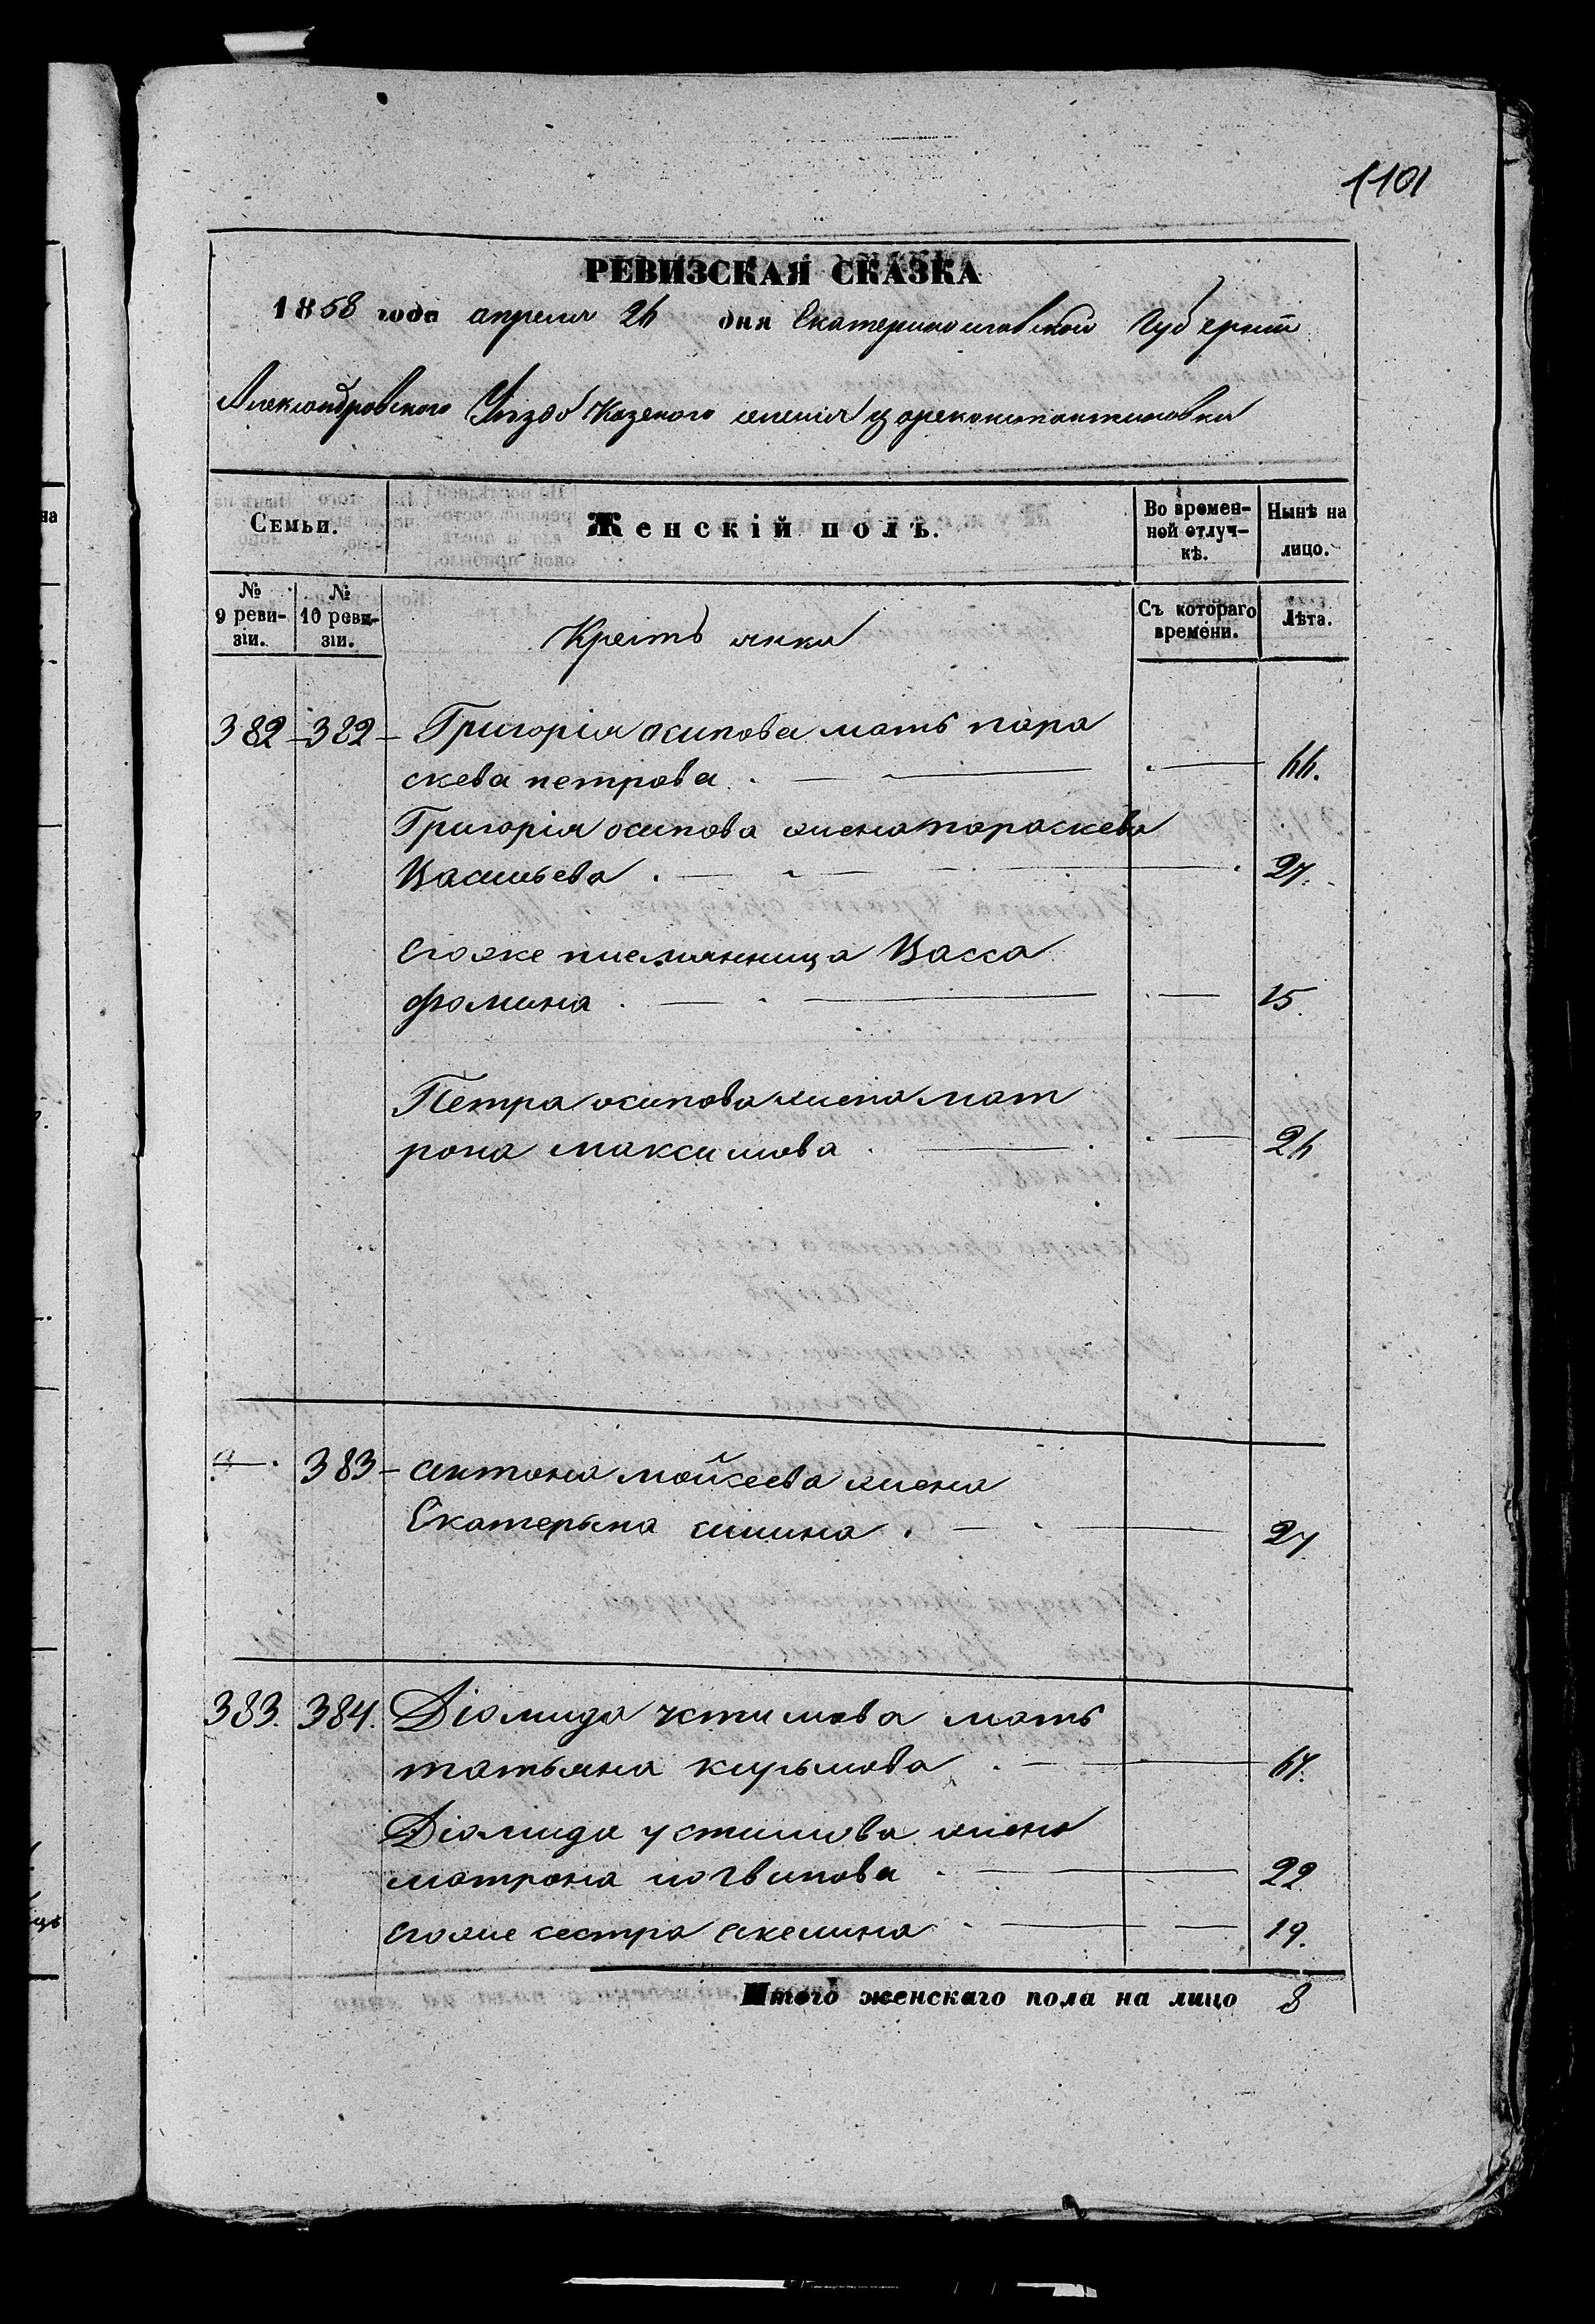 1101
РЕВИЗСКАЯ СКАЗКА
1858 года апреля 24 дня Екатеринославской Губернии
Александровского Уезда Казеного селения Цареконстантиновки
Семьи. Женскій полъ. Во времен-ной отлуч-кѣ. Нынѣ на лицо.
№ 9 реви-зіи. № 10 реви-зіи. Крестьянки Съ котораго времени. Лѣта.
382 - 382 - Григорія осипова мать пара
скева петрова 44.
Григорія осипова жена параскева
Васильева 27.
егоже племянница Васса
фомина 15.
Петра осипова жена мат
рона максимова 24
383 - антона мойсеева жена
Екатерына 27
383. 384. Діомида устимова мать
татьяна кузьмова 67.
Діомида устимова жена
матрона логвинова 22
егоже сестра акелина 19.
Итого женскаго пола на лицо 8